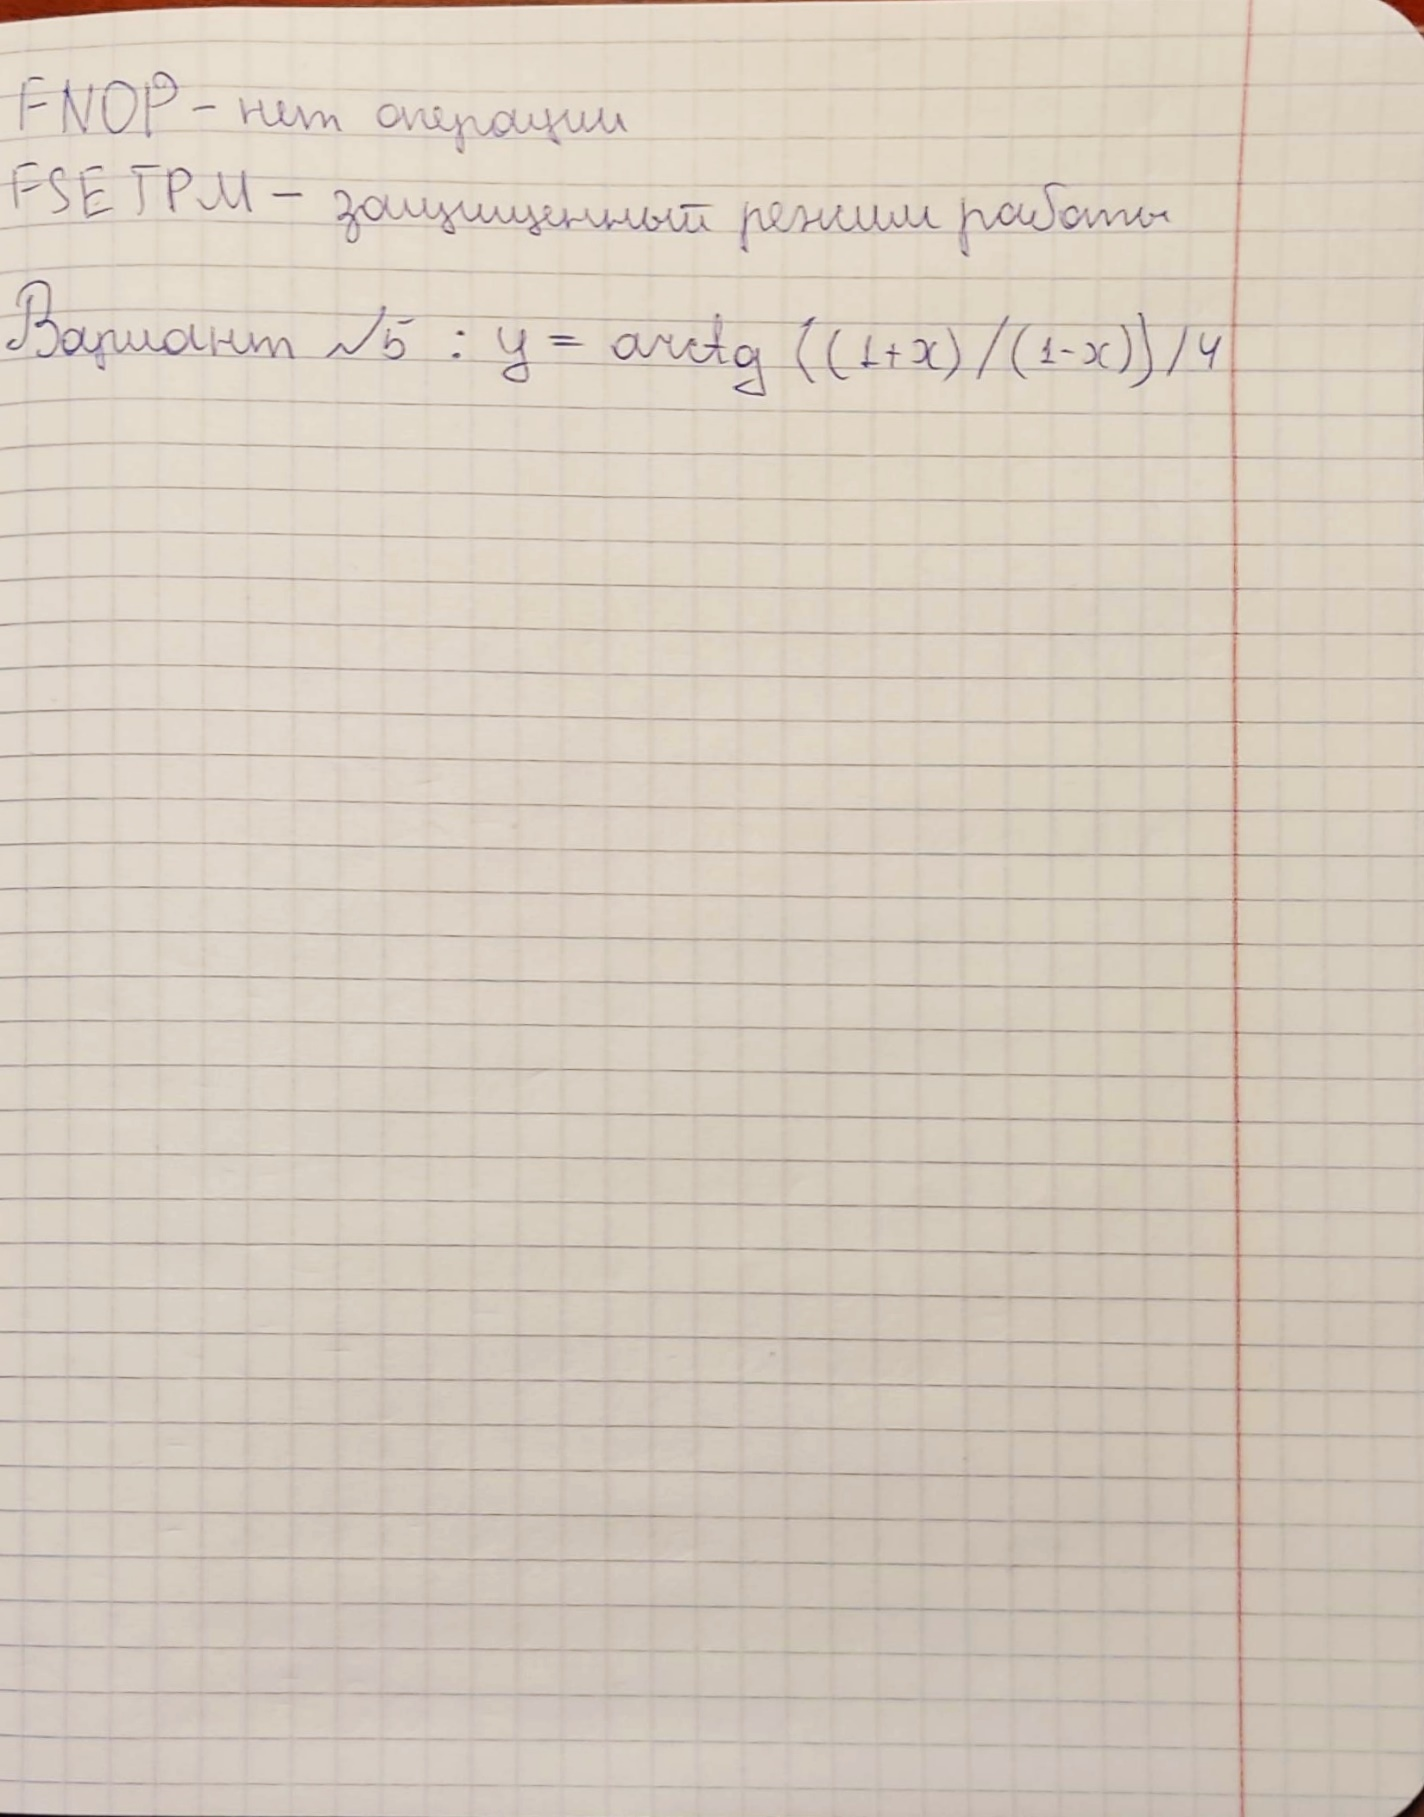 FNOP - нет операции
FSETPM - защищенный режим работы
Вариант №5 : y = arctg ((1+x)/(1-x))/4